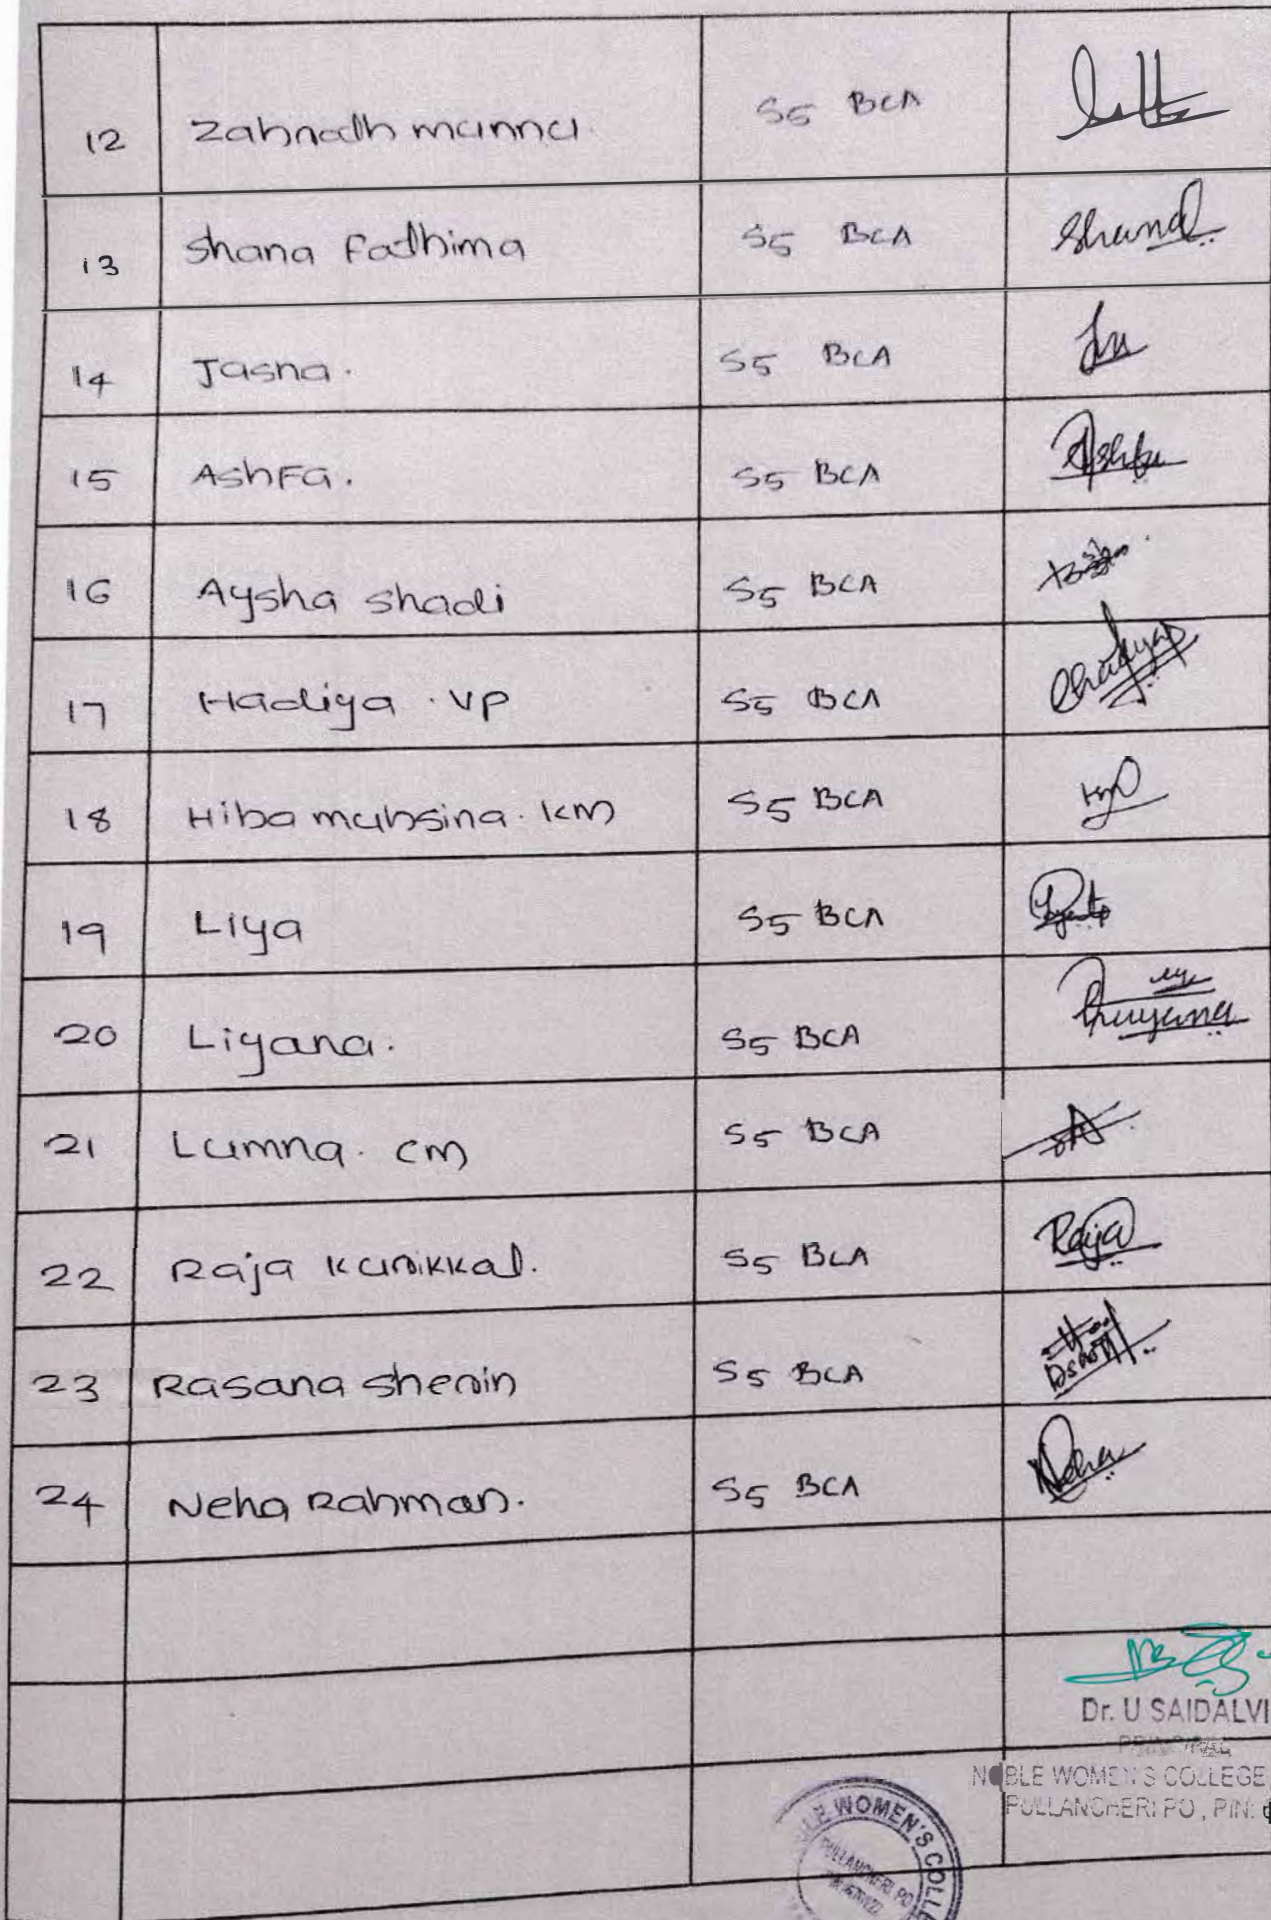 12 Zahnadh munna. S5 BCA
13 Shana Fadhima S5 BCA Shana
14 Jasna. S5 BCA
15 Ashfa. S5 BCA Ashfa
16 Aysha shadi S5 BCA
17 Hadiya . VP S5 BCA
18 Hiba muhsina. KM S5 BCA
19 Liya S5 BCA
20 Liyana. S5 BCA
21 Lumna. CM S5 BCA
22 Raja kunikkal. S5 BCA Raja
23 Rasana sherin S5 BCA
24 Neha Rahman. S5 BCA Neha
Dr. U SAIDALVI
PRINCIPAL
NOBLE WOMEN'S COLLEGE
PULLANCHERI PO, PIN:
WOMEN'S COLLE
PULLANCHERI PO